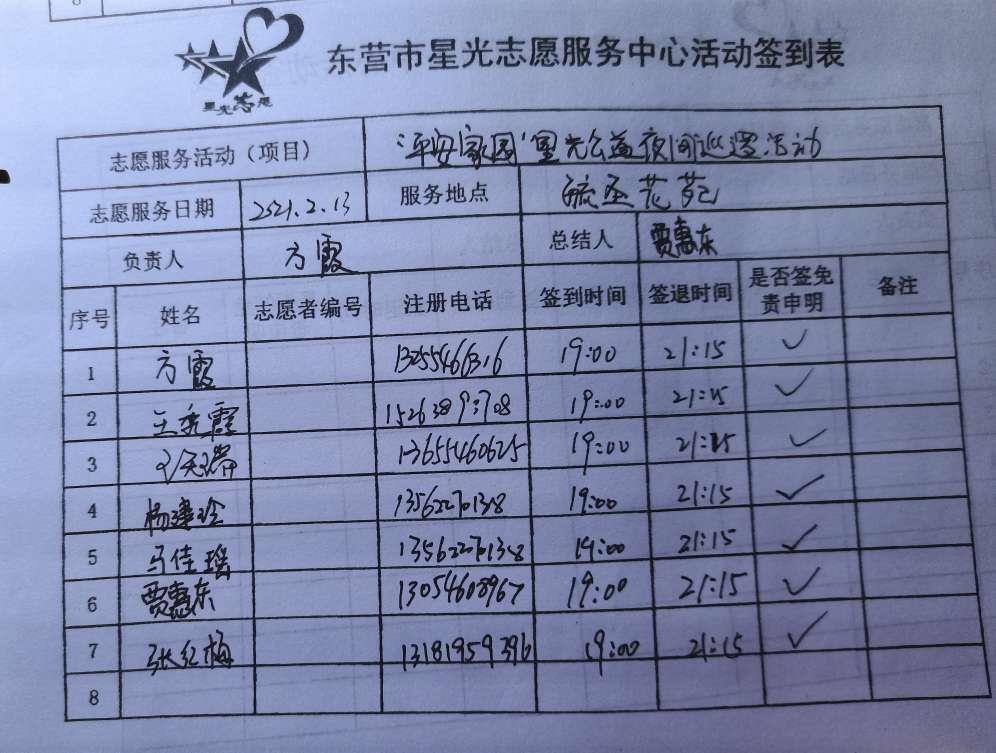 8
星光志愿
东营市星光志愿服务中心活动签到表
志愿服务活动（项目） “平安家园”星光公益夜间巡逻活动
志愿服务日期 2021.2.13 服务地点 毓丞花苑
负责人 方霞 总结人 贾惠东
序号 姓名 志愿者编号 注册电话 签到时间 签退时间 是否签免责申明 备注
1 方霞 13255466316 19:00 21:15 ✓
2 王秀霞 19:00 21:15 ✓
3 13655460625 19:00 21:15 ✓
4 杨建玲 13562270138 19:00 21:15 ✓
5 马佳瑶 13562270138 19:00 21:15 ✓
6 贾惠东 13054608967 19:00 21:15 ✓
7 张红梅 13181959396 19:00 21:15 ✓
8